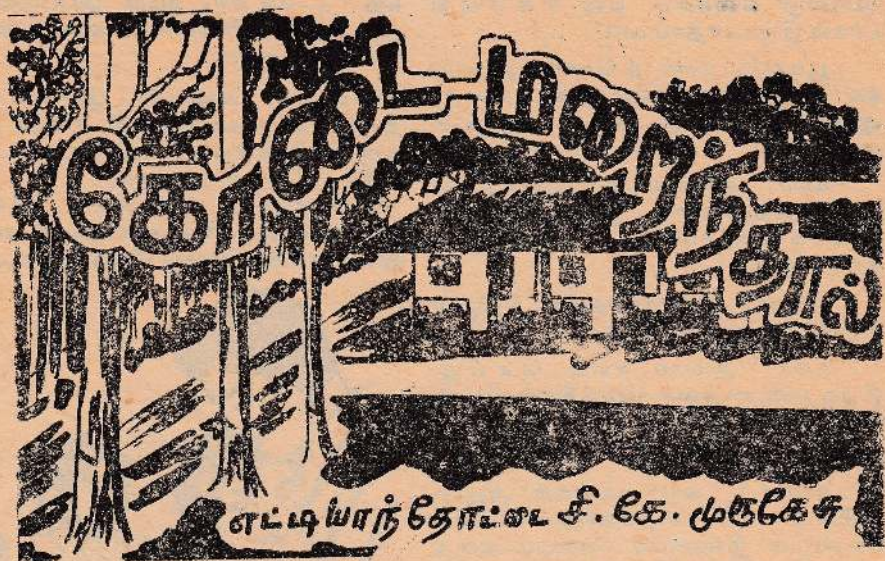 கோடை மறைந்தால்
எட்டியாந்தோட்டை சி. கே. முருகேசு